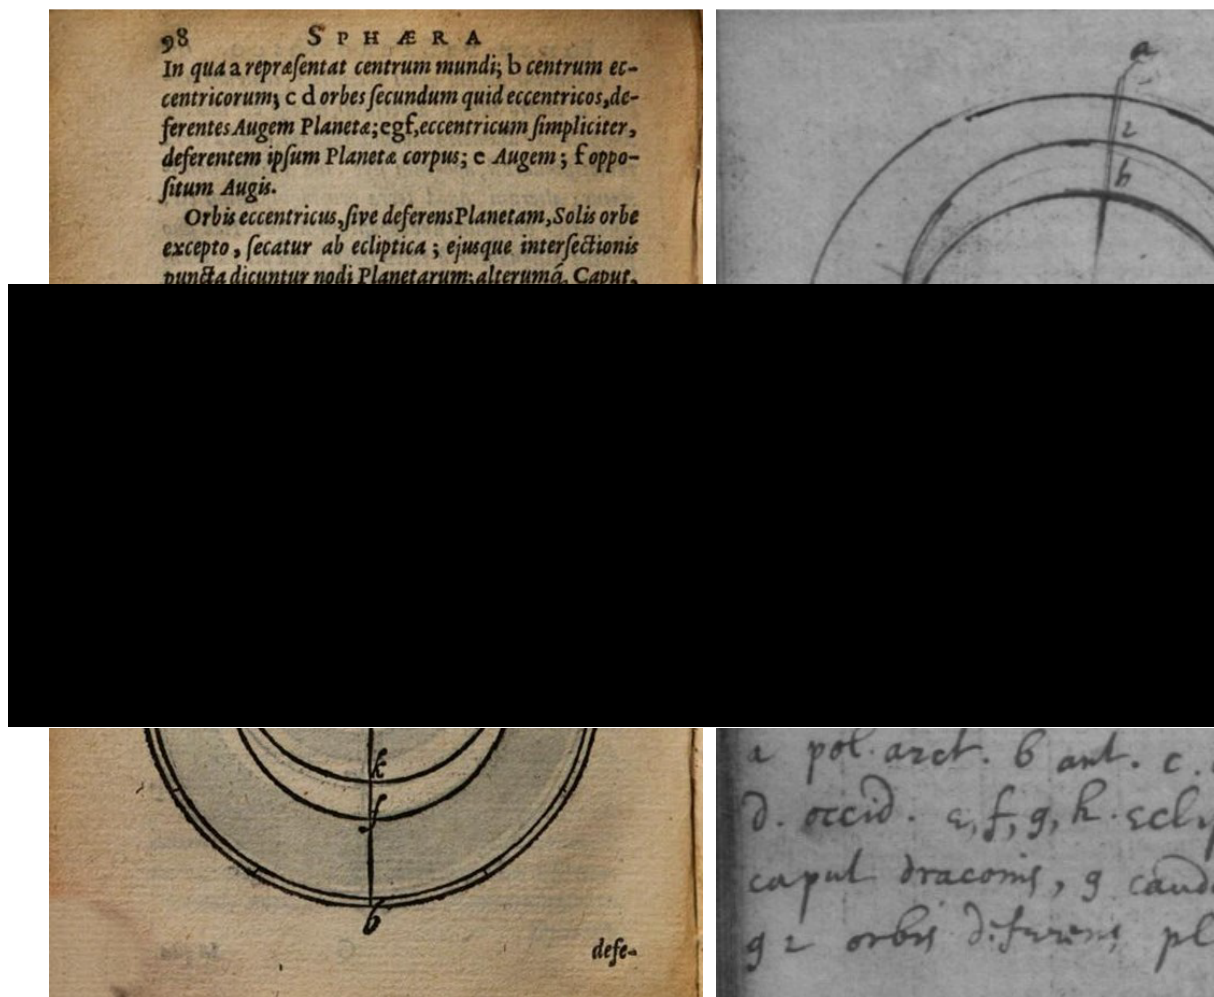 98 SPHÆRA
In qua a repræſentat centrum mundi; b centrum ec-
centricorum; c d orbes ſecundum quid eccentricos, de-
ferentes Augem Planetæ; egf, eccentricum ſimpliciter,
deferentem ipſum Planetæ corpus; e Augem; f oppo-
ſitum Augis.
Orbis eccentricus, ſive deferens Planetam, Solis orbe
excepto, ſecatur ab ecliptica; ejusque interſectionis
puncta dicuntur nodi Planetarum; alterumq́, Caput,
k
f
b
defe-
a
2
b
a pol. arct. b ant. c.
d. occid. e, f, g, h. eclip
caput draconis, g caud
g 2 orbis deferens pl